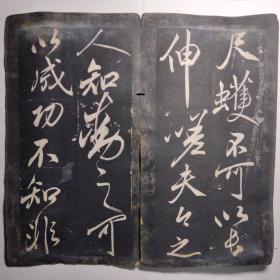 尺蠖不可以长
伸嗟夫人之
人知动之可
以成功不知非